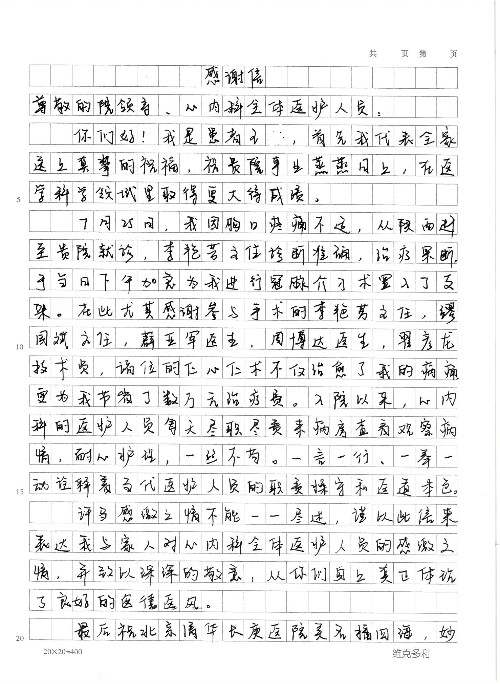 共 页 第 页
感谢信
尊敬的院领导、心内科全体医护人员：
你们好！我是患者王，首先我代表全家
送上真挚的祝福，祝贵院事业蒸蒸日上，在医
学科学领域里取得更大得成绩。
5
7月25日，我因胸口疼痛不适，从陕西赶
至贵院就诊，李艳芳主任诊断准确，治疗果断，
于当日下午加急为我进行冠脉介入术置入了支
架。在此尤其感谢参与手术的李艳芳主任，缪
国斌主任，薛亚军医生，周博达医生，翟彦龙
10
技术员，诸位的仁心仁术不仅治愈了我的病痛
更为我节省了数万元治疗费。入院以来，心内
科的医护人员每天尽职尽责来病房查看观察病
情，耐心护理，一丝不苟。一言一行、一举一
动诠释着当代医护人员的职责操守和医道本色。
15
许多感激之情不能一一尽述，谨以此信来
表达我与家人对心内科全体医护人员的感激之
情，并致以深深的敬意，从你们身上真正体验
了良好的医德医风。
最后祝北京清华长庚医院美名播四海，妙
20
20×20=400
维克多利